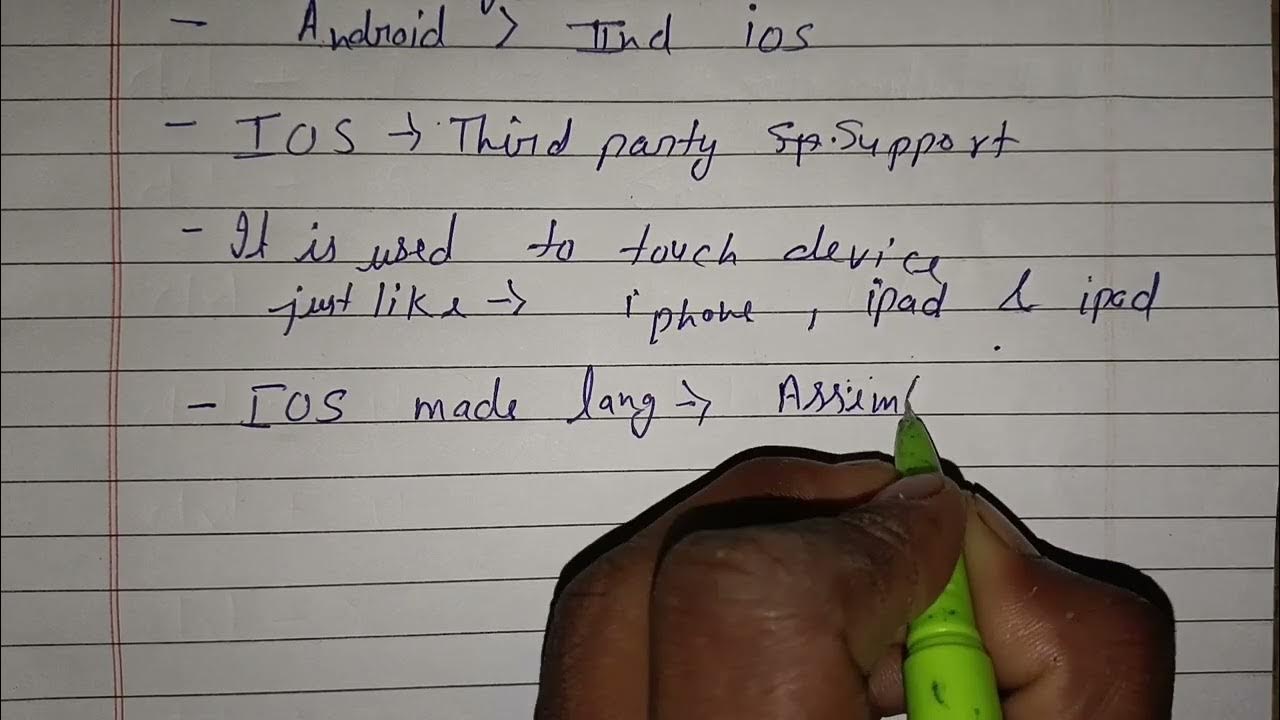 - Android > IInd ios
- IOS → Third party Sp. Support
- It is used to touch device
just like → iphone, ipad & ipad
- IOS made lang → Assem